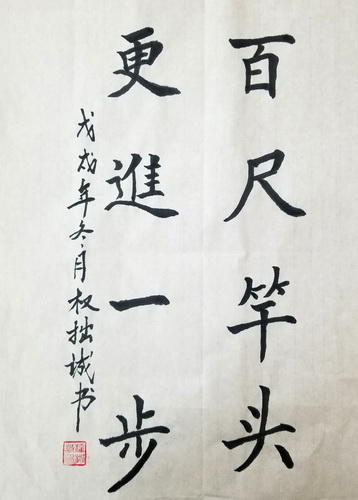 百尺竿头
更進一步
戊戌年冬月权拙城书